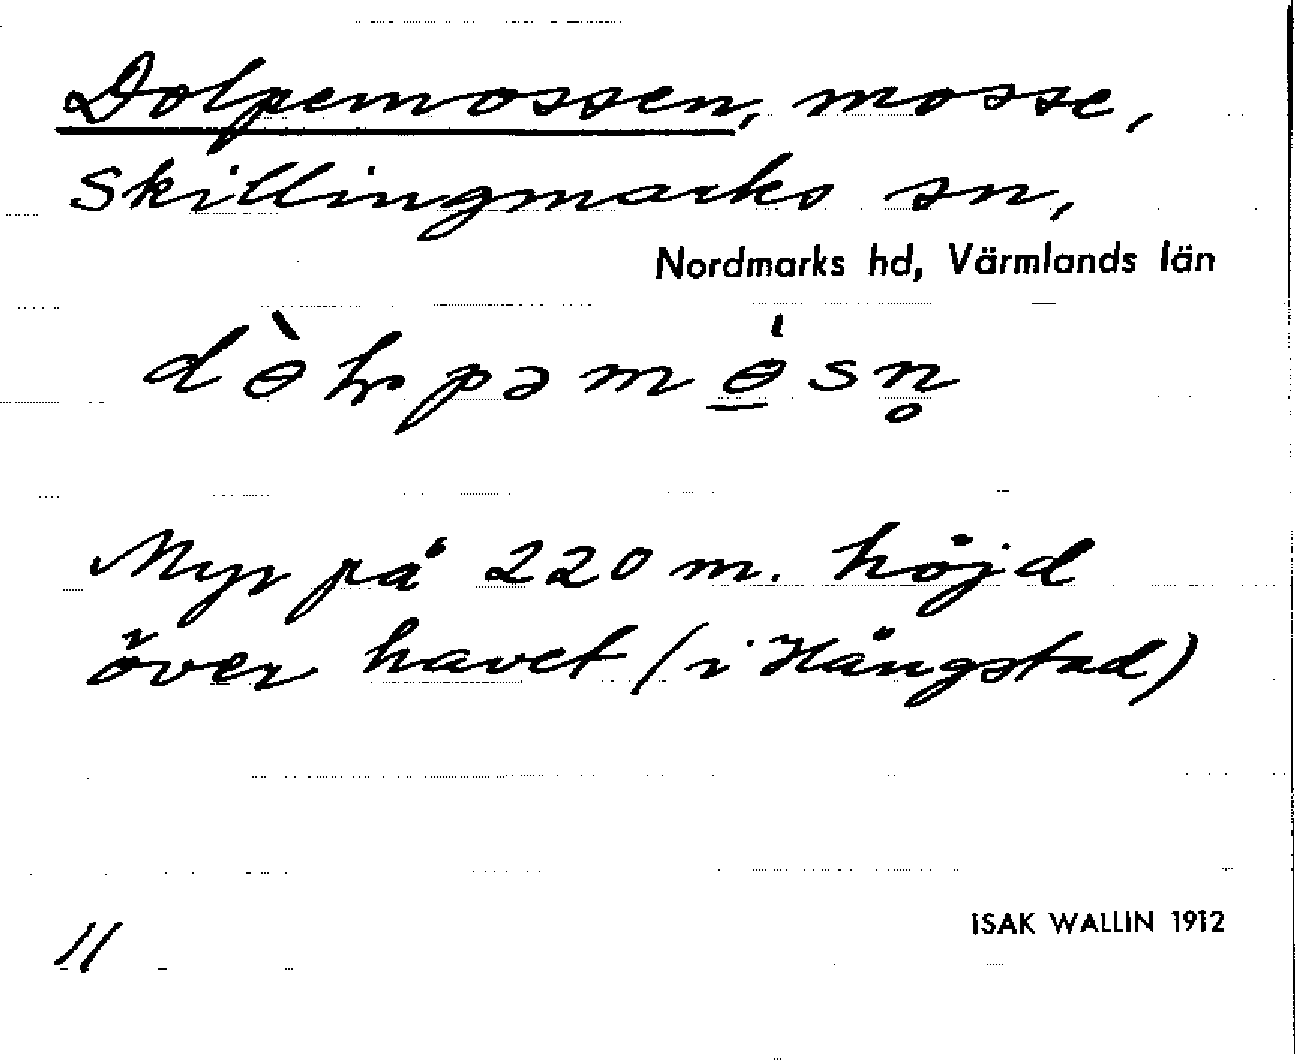 Dolpemossen, mosse,
Skillingmarks sn,
Nordmarks hd, Värmlands län
Myr på 220 m. höjd
över havet (i Hängstad)
ISAK WALLIN 1912
11